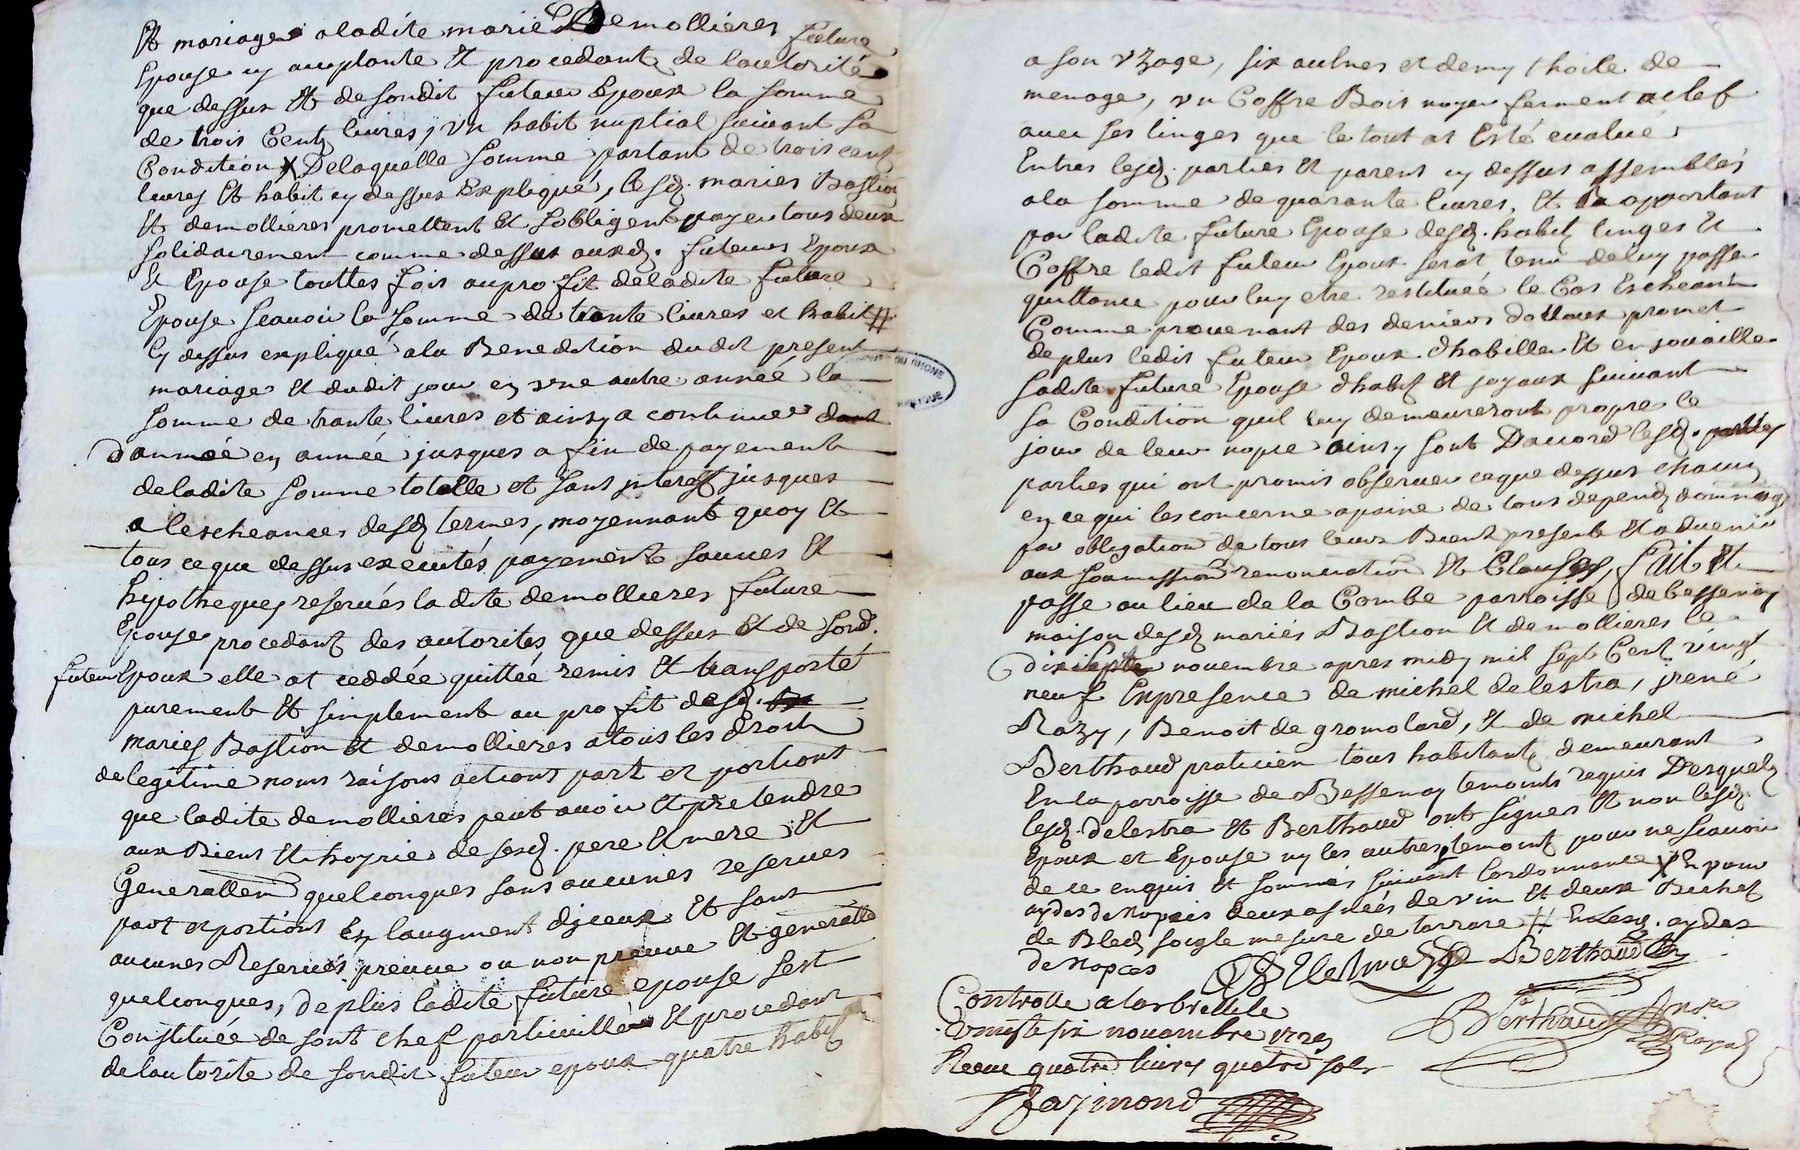 Et mariage a ladite marie Demollieres future
Epouse cy acceptante Et procedante de lautorité
que dessus Et de sondit futeur Epoux la somme
de trois Cents livres, un habit nuptial suivant sa
Condition X Delaquelle somme partant de trois cent
livres Et habit cy dessus Expliqué, lesd. maries Bastion
Et demollieres promettent Et sobligent payer tous deux
solidairement comme dessus auxd. futeurs Epoux
Et Epouse touttes fois au profit deladite future
Epouse scavoir la somme de trante livres et habit #
Cy dessus expliqué ala Benediction dudit present
mariage Et dudit jour en une autre année la
somme de trante livres et ainsy a continuer dant
Danneé en année jusques a fin de payement
deladite somme totalle et sans interest jusques
a lescheances desd. termes, moyennant quoy Et
tous ce que dessus executés, payements sauves Et
hipotheques reservés ladite demollieres future
Epouse procedant des autorités que dessus Et de sond.
futeur Epoux elle at ceddée quittée remis Et transporté
purement Et simplement au profit desd.
maries Bastion Et demollieres atous les Droits
delegitime noms raisons actions part et portions
que ladite demollieres peut avoir Et pretendre
aux Biens Et hoyrie de sesd. pere Et mere Et
Generallem quelconques sans aucunes reserves
part et portions En laugment dyceux Et sans
aucunes Reserves preveue ou non preveue Et generalle
quelconques, De plus ladite future epouse sest
Constituée de sont chef particuillier Et procedant
delautorite de sondit futeur epoux quatre habits
a son uzage, six aulnes et demy thoile de
menage, un Coffre Bois noyer ferment aclef
avec ses linges que le tout at Esté evalué
Entres lesd. parties Et parens cy dessus assemblés
ala somme de quarante livres, Et apportant
par ladite future Epouse desd. habits linges Et
Coffre ledit futeur Epoux serat tenu deluy passer
quittance pour luy etre restituée le Cas Escheant
Comme provenant des deniers dottaux promet
de plus ledit futeur Epoux dhabiller Et enjouailler
sadite future Epouse dhabits Et joyaux suivant
sa Condition quil luy demeureront propre le
jour de leur nopce ainsy sont Daccord lesd. parties
parties qui ont promis observer ceque dessus chacun
en ce qui les concerne apeine de tous depends dommages
par obligation de tous leurs Biens presents Et advenir
aux soumissions renonciation Et Clauses, fait Et
passé au lieu de la Combe parroisse de Bessenay
maison desd. mariés Bastion Et demollieres le
dixsepte novembre apres midy mil sept Cent vingt
neuf Enpresence de michel delestra, jrené
Razy, Benoit de gromolard, Et de michel
Berthaud praticien tous habitants demeurant
En la parroisse de Bessenay temoints requis Desquels
lesd. delestra Et Berthaud ont signés Et non lesd.
Epoux et Epouse ny les autres temoints pour ne scavoir
de ce enquis Et sommés suivant lordonnance X En pour
aydes de Nopces deux asnées de vin Et deux Bichets
de Bled soigle mesure de tarrare # En lesd. aydes
de Nopces
Berthaud
Controlle a larbrelle le
vingte six novambre 1729
Receu quatre livres quatre sols
Berthaud
Raymond
DU RHONE